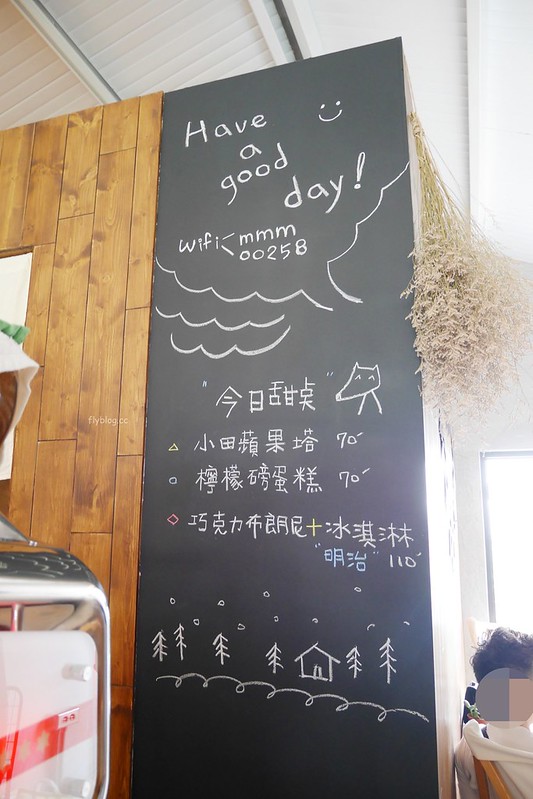 Have
a
good
day!
wifi< mmm
00258
"今日甜点"
小田蘋果塔 70
檸檬磅蛋糕 70
巧克力布朗尼+冰淇淋
"明治" 110
flyblog.cc